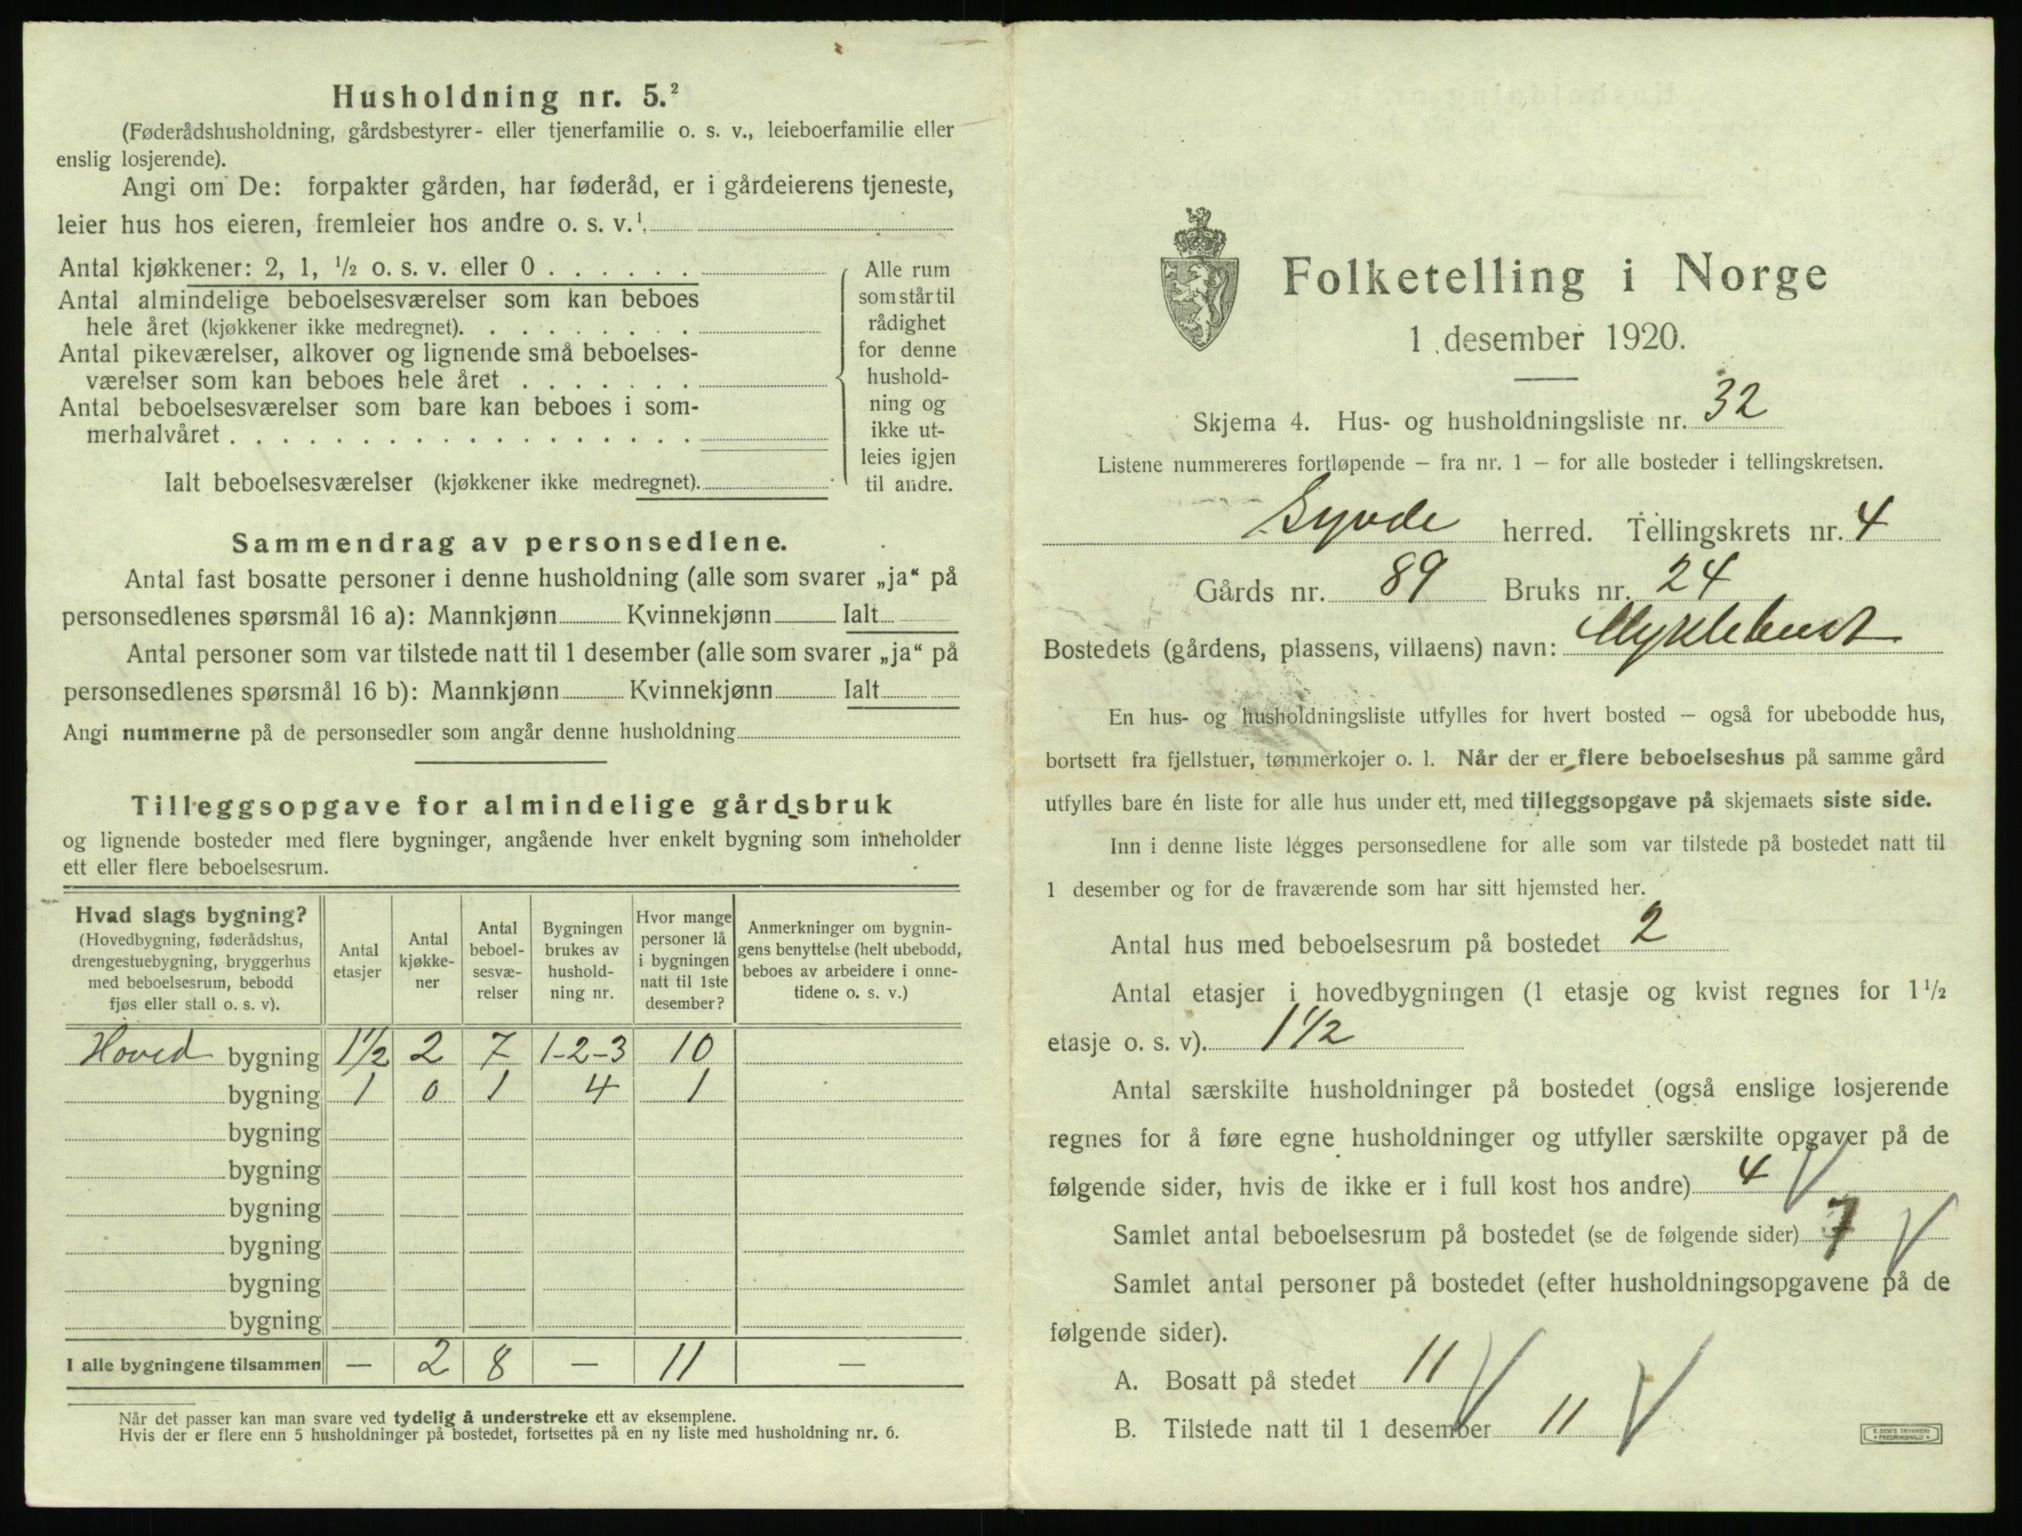 Husholdning nr. 5.²
(Føderådshusholdning, gårdsbestyrer- eller tjenerfamilie o. s. v., leieboerfamilie eller
enslig losjerende).
Angi om De: forpakter gården, har føderåd, er i gårdeierens tjeneste,
leier hus hos eieren, fremleier hos andre o. s. v.¹
Antal kjøkkener: 2, 1, ½ o. s. v. eller 0 . . . . . .
Antal almindelige beboelsesværelser som kan beboes
hele året (kjøkkener ikke medregnet). . . . . . . . .
Antal pikeværelser, alkover og lignende små beboelses-
værelser som kan beboes hele året . . . . . . .
Antal beboelsesværelser som bare kan beboes i som-
merhalvåret . . . . . . . . . . . . . . . . . .
Alle rum
som står til
rådighet
for denne
hushold-
ning og
ikke ut-
leies igjen
til andre.
Ialt beboelsesværelser (kjøkkener ikke medregnet).
Sammendrag av personsedlene.
Antal fast bosatte personer i denne husholdning (alle som svarer „ja“ på
personsedlenes spørsmål 16 a): Mannkjønn Kvinnekjønn Ialt
Antal personer som var tilstede natt til 1 desember (alle som svarer „ja“ på
personsedlenes spørsmål 16 b): Mannkjønn Kvinnekjønn Ialt
Angi nummerne på de personsedler som angår denne husholdning
Tilleggsopgave for almindelige gårdsbruk
og lignende bosteder med flere bygninger, angående hver enkelt bygning som inneholder
ett eller flere beboelsesrum.
Hvad slags bygning?
(Hovedbygning, føderådshus,
drengestuebygning, bryggerhus
med beboelsesrum, bebodd
fjøs eller stall o. s. v).
Antal
etasjer
Antal
kjøkke-
ner
Antal
beboel-
sesvæ-
relser
Bygningen
brukes av
hushold-
ning nr.
Hvor mange
personer lå
i bygningen
natt til 1ste
desember?
Anmerkninger om bygnin-
gens benyttelse (helt ubebodd,
beboes av arbeidere i onne-
tidene o. s. v.)
Hoved bygning 1½ 2 7 1-2-3 10
bygning 1 0 1 4 1
bygning
bygning
bygning
bygning
bygning
bygning
I alle bygningene tilsammen — 2 8 — 11 —
Når det passer kan man svare ved tydelig å understreke ett av eksemplene.
Hvis der er flere enn 5 husholdninger på bostedet, fortsettes på en ny liste med husholdning nr. 6.
Folketelling i Norge
1 desember 1920.
Skjema 4. Hus- og husholdningsliste nr. 32
Listene nummereres fortløpende — fra nr. 1 — for alle bosteder i tellingskretsen.
Syvde herred. Tellingskrets nr. 4
Gårds nr. 89 Bruks nr. 24
Bostedets (gårdens, plassens, villaens) navn: Myklebust
En hus- og husholdningsliste utfylles for hvert bosted — også for ubebodde hus,
bortsett fra fjellstuer, tømmerkojer o. l. Når der er flere beboelseshus på samme gård
utfylles bare én liste for alle hus under ett, med tilleggsopgave på skjemaets siste side.
Inn i denne liste legges personsedlene for alle som var tilstede på bostedet natt til
1 desember og for de fraværende som har sitt hjemsted her.
Antal hus med beboelsesrum på bostedet 2
Antal etasjer i hovedbygningen (1 etasje og kvist regnes for 1½
etasje o. s. v). 1½
Antal særskilte husholdninger på bostedet (også enslige losjerende
regnes for å føre egne husholdninger og utfyller særskilte opgaver på de
følgende sider, hvis de ikke er i full kost hos andre) 4
Samlet antal beboelsesrum på bostedet (se de følgende sider) 7
Samlet antal personer på bostedet (efter husholdningsopgavene på de
følgende sider).
A. Bosatt på stedet 11
B. Tilstede natt til 1 desember 11